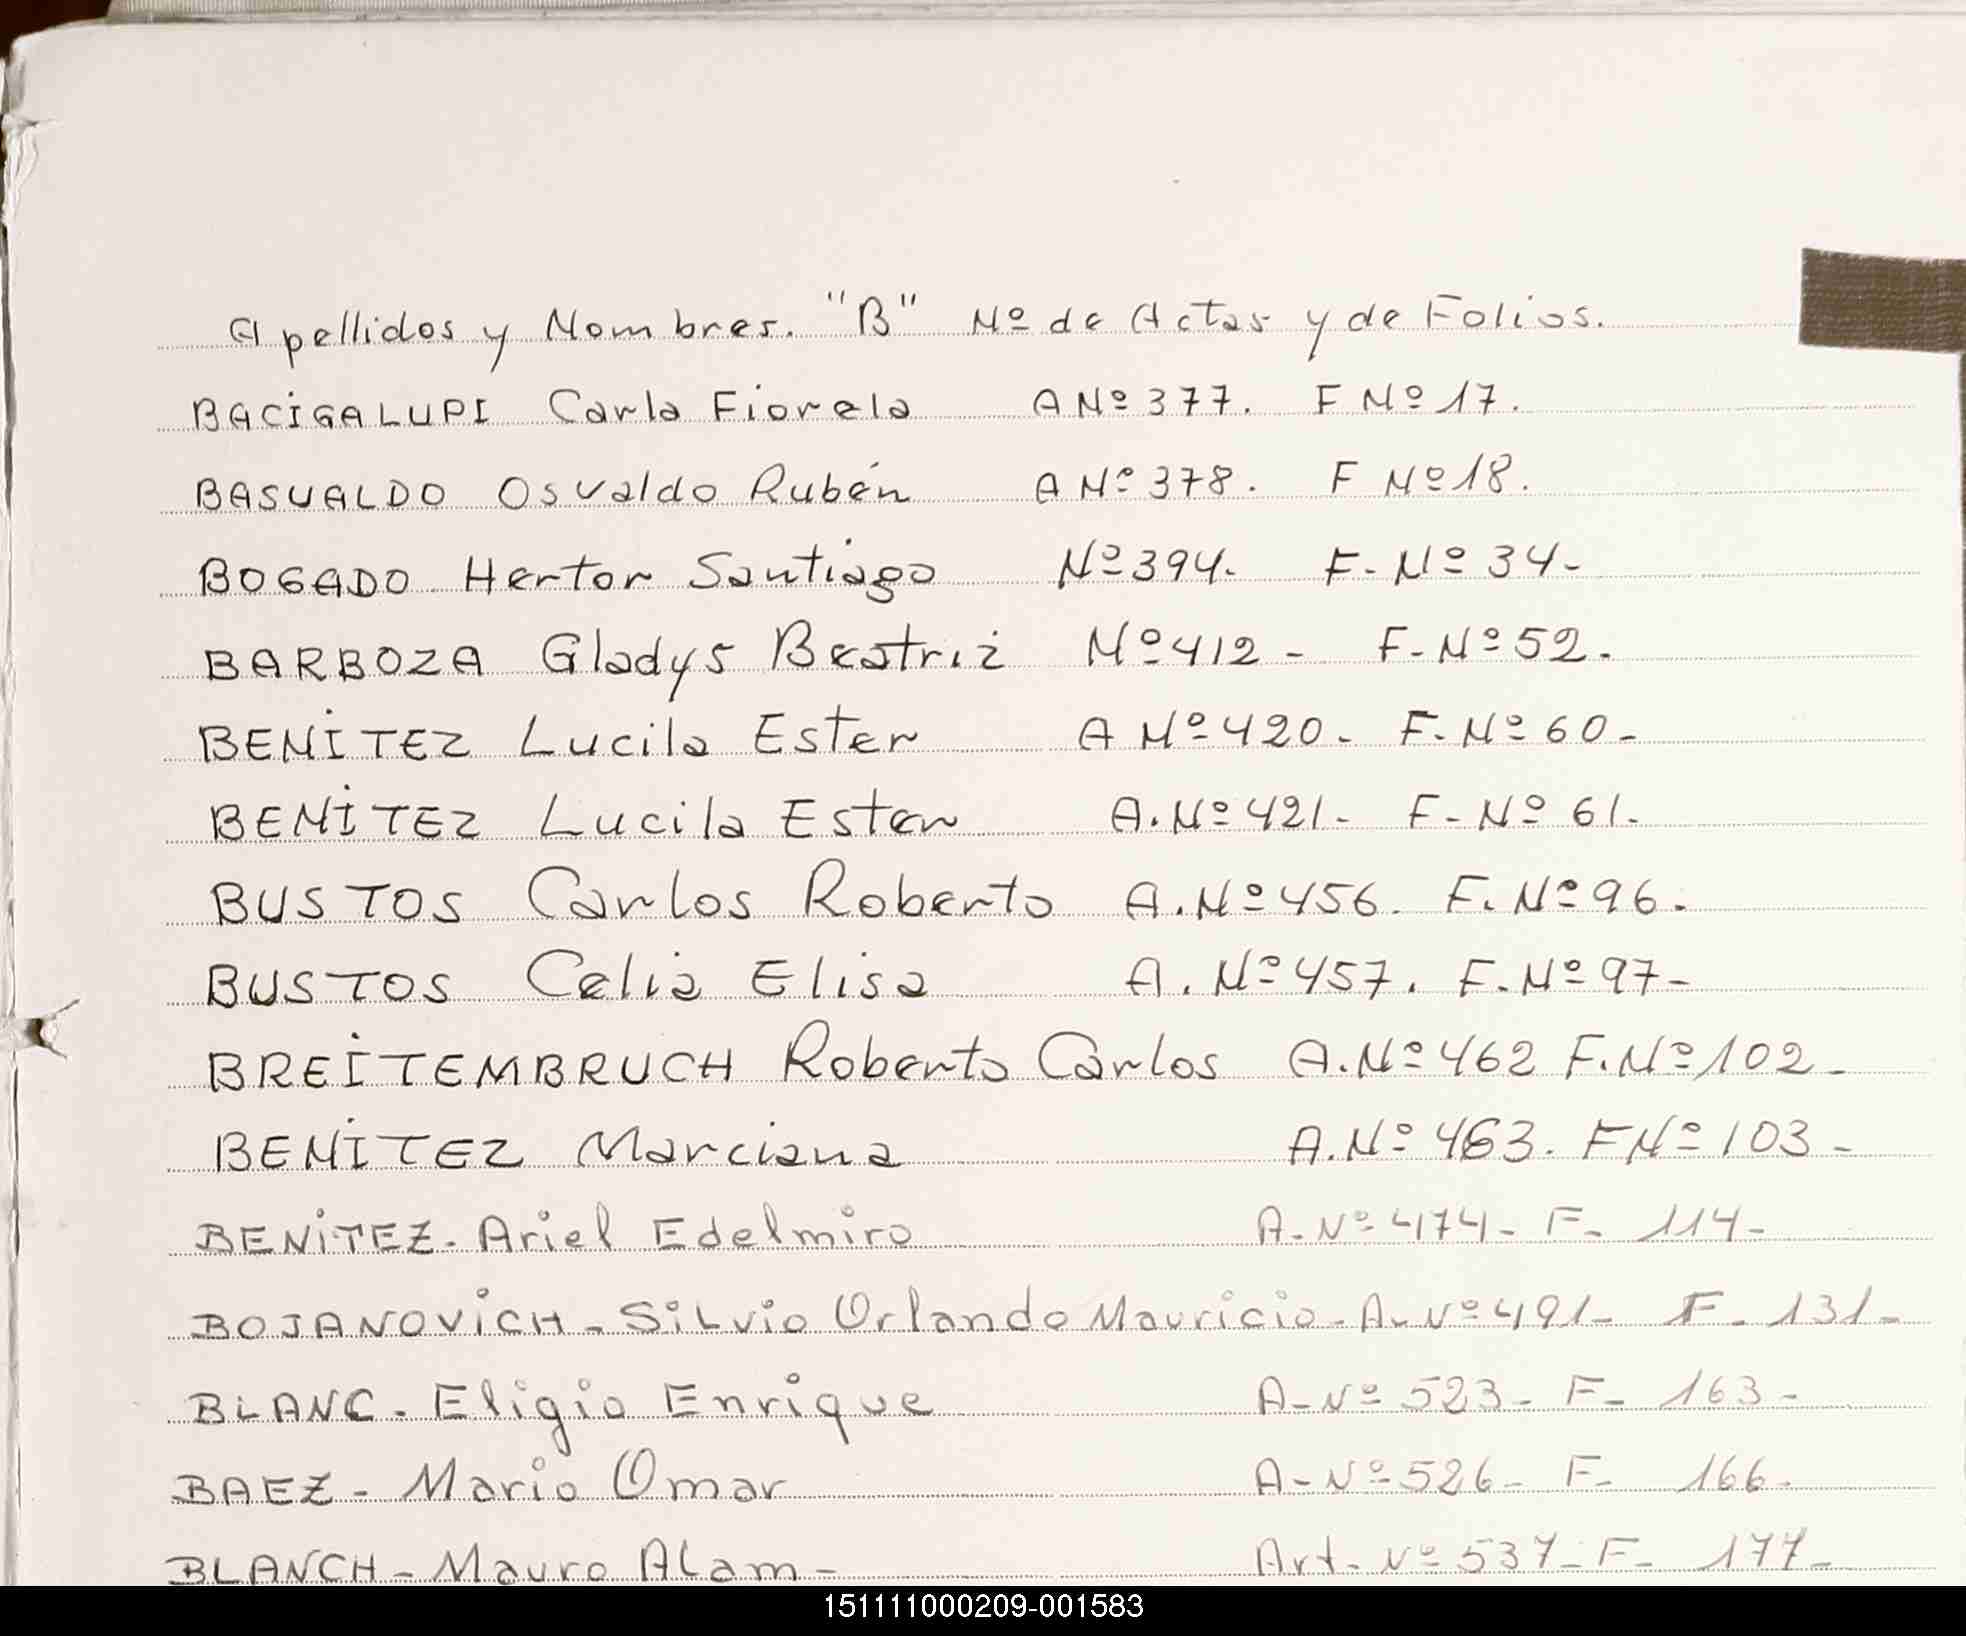 Apellidos y Nombres. "B" Nº de Actas y de Folios.
BACIGALUPI Carla Fiorela A Nº 377. F Nº 17.
BASUALDO Osvaldo Rubén A Nº 378. F Nº 18.
BOGADO Hertor Santiago Nº 394. F. Nº 34-
BARBOZA Gladys Beatriz Nº 412 - F. Nº 52.
BENITEZ Lucila Ester A Nº 420- F. Nº 60-
BENITEZ Lucila Ester A. Nº 421- F- Nº 61-
BUSTOS Carlos Roberto A. Nº 456. F. Nº 96.
BUSTOS Celia Elisa A. Nº 457. F. Nº 97-
BREITEMBRUCH Roberto Carlos A. Nº 462 F. Nº 102-
BENITEZ Marciana A. Nº 463. F Nº 103-
BENITEZ- Ariel Edelmiro A- Nº 474- F- 114-
BOJANOVICH- Silvio Orlando Mauricio- A- Nº 491- F- 131-
BLANC- Eligio Enrique A- Nº 523- F- 163-
BAEZ- Mario Omar A- Nº 526- F- 166-
BLANCH- Mauro Alam- Art- Nº 537- F- 177-
151111000209-001583